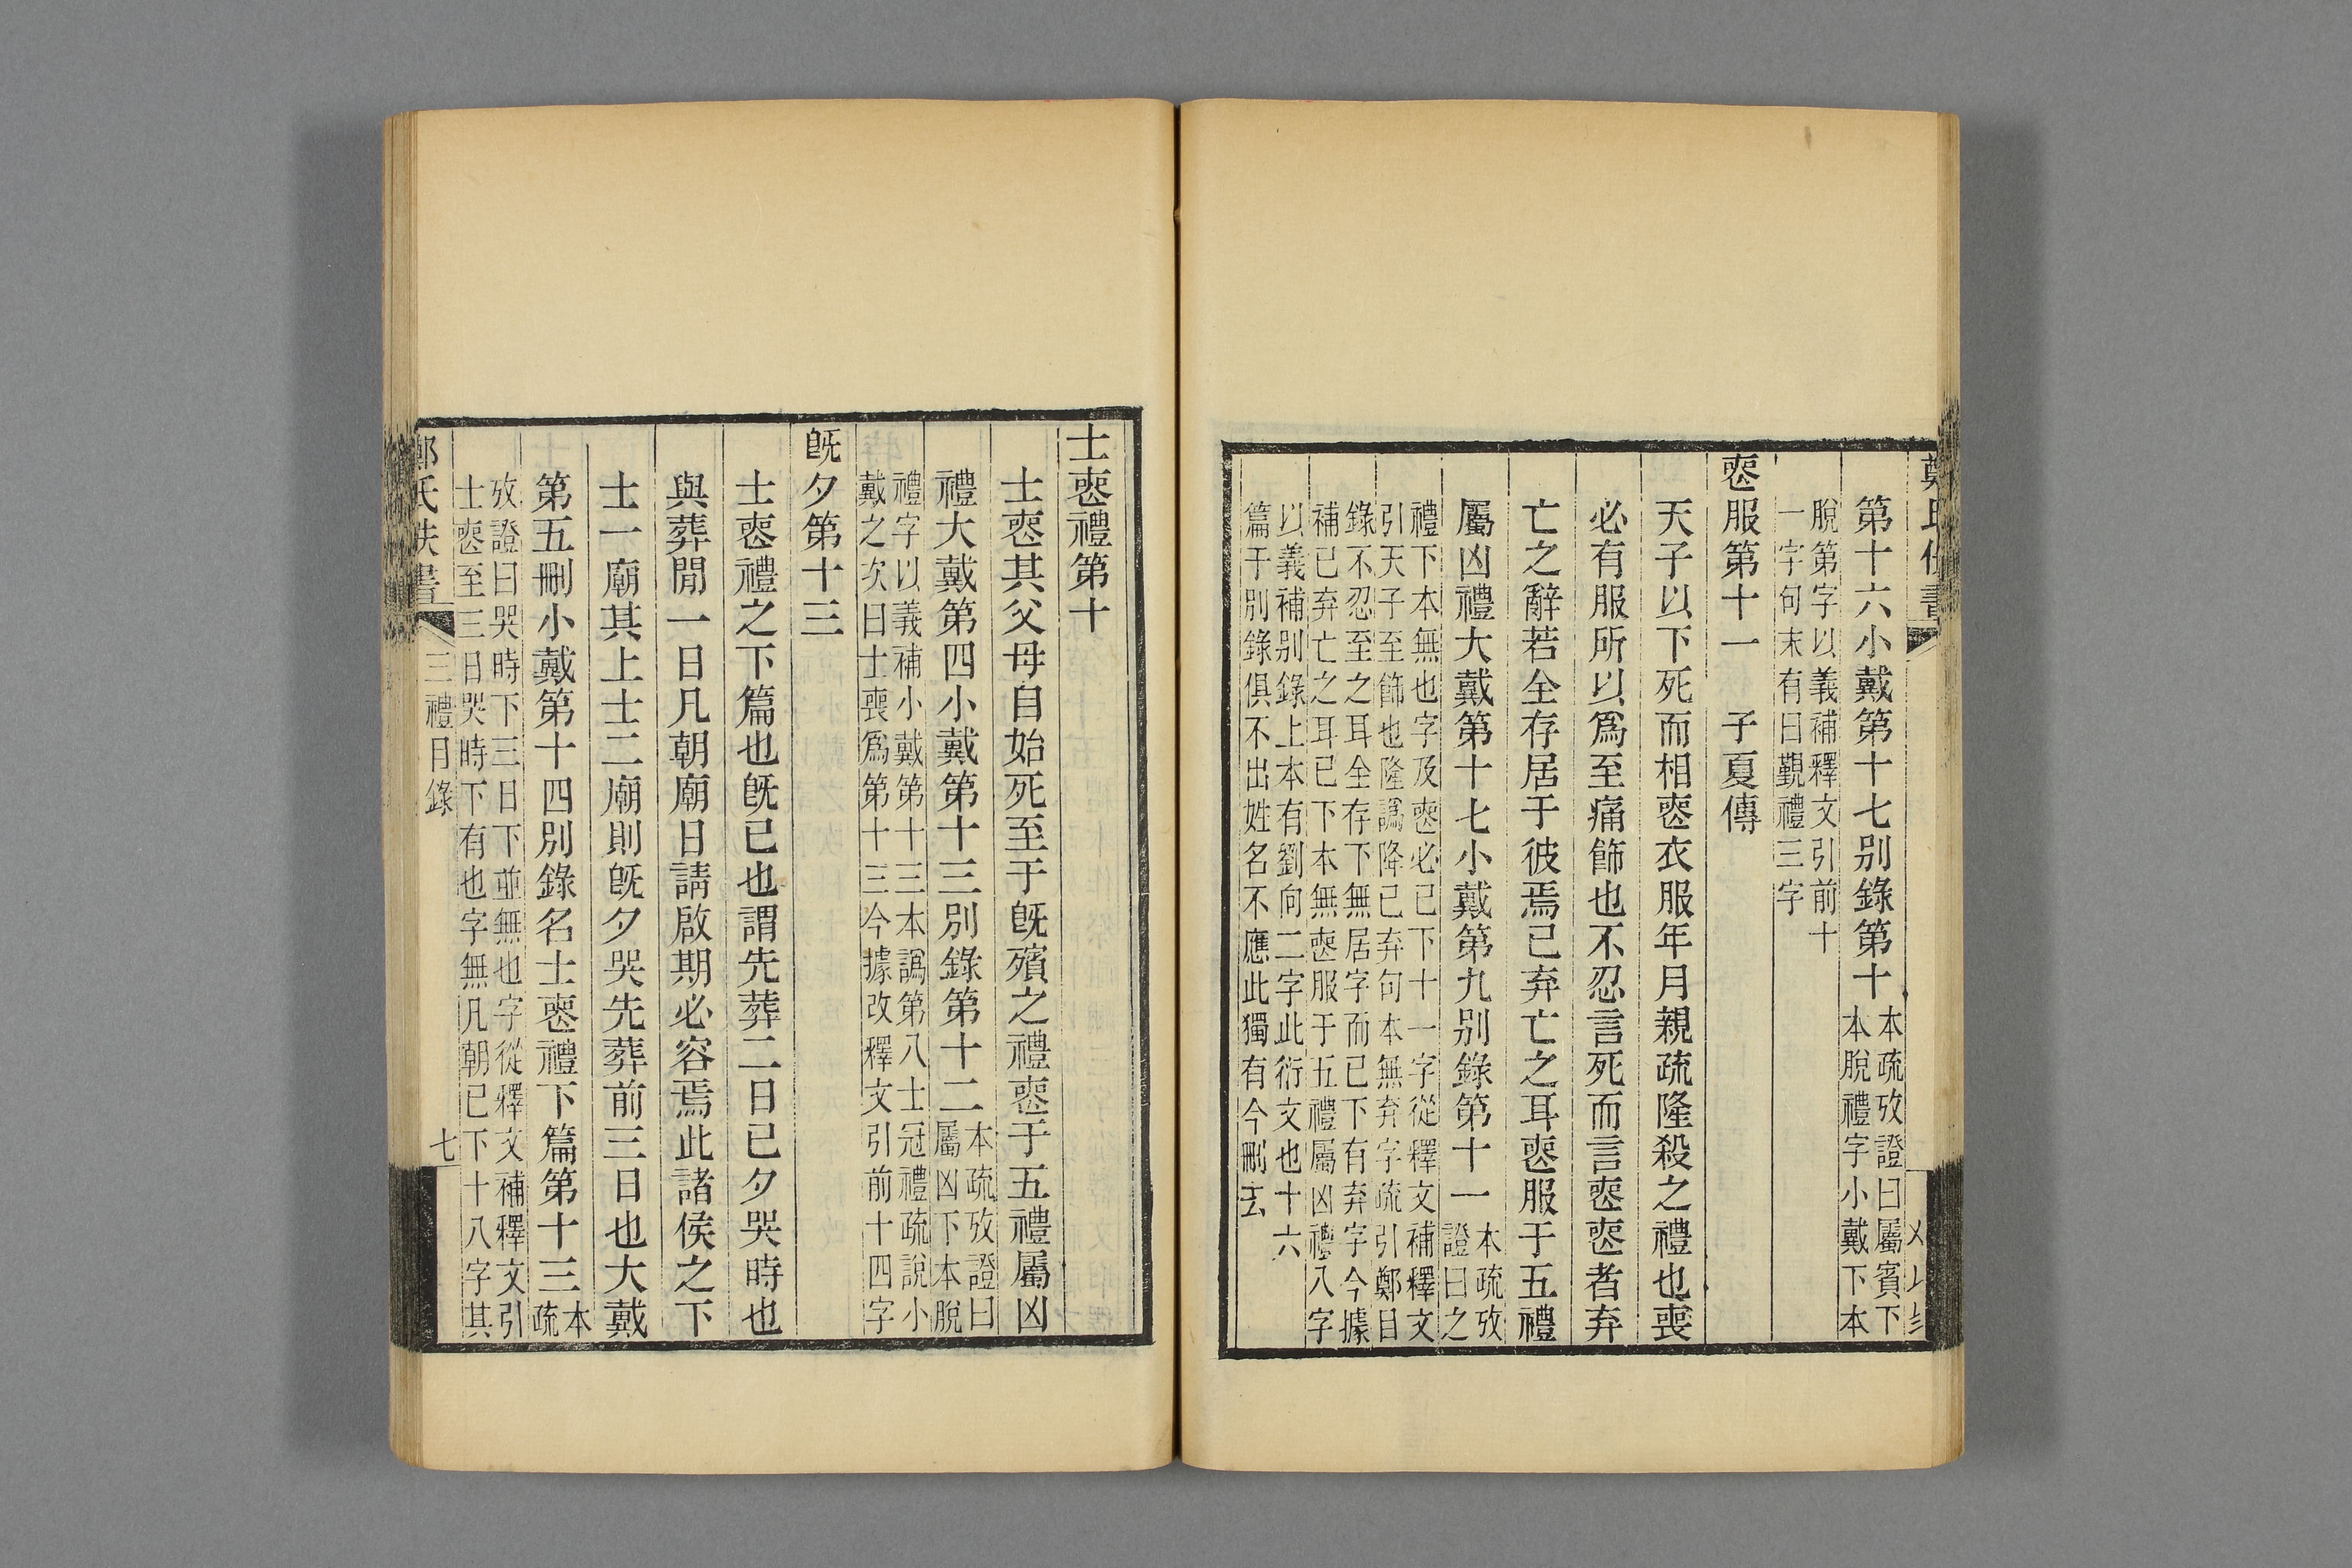 第十六小戴第十七別錄第十本疏攷證曰屬賓下
本脫禮字小戴下本
脫第字以義補釋文引前十
一字句末有曰覲禮三字
喪服第十一　子夏傳
天子以下死而相喪衣服年月親疏隆殺之禮也喪
必有服所以爲至痛飾也不忍言死而言喪喪者弃
亡之辭若全存居于彼焉已弃亡之耳喪服于五禮
屬凶禮大戴第十七小戴第九別錄第十一本疏攷
證曰之
禮下本無也字及喪必已下十一字從釋文補釋文
引天子至飾也隆譌降已弃句本無弃字疏引鄭目
錄不忍至之耳全存下無居字而已下有弃字今據
補已弃亡之耳已下本無喪服于五禮屬凶禮八字
以義補別錄上本有劉向二字此衍文也十六
篇于別錄俱不出姓名不應此獨有今刪去
士喪禮第十二
士喪其父母自始死至于旣殯之禮喪于五禮屬凶
禮大戴第四小戴第十三別錄第十二本疏攷證曰
屬凶下本脫
禮字以義補小戴第十三本譌第八士冠禮疏說小
戴之次曰士喪爲第十三今據改釋文引前十四字
旣夕第十三
士喪禮之下篇也旣已也謂先葬二日已夕哭時也
與葬閒一日凡朝廟日請啟期必容焉此諸侯之下
士一廟其上士二廟則旣夕哭先葬前三日也大戴
第五刪小戴第十四別錄名士喪禮下篇第十三本
疏
攷證曰哭時下三日下並無也字從釋文補釋文引
士喪至三日哭時下有也字無凡朝已下十八字其
鄭氏佚書　三禮目錄　七